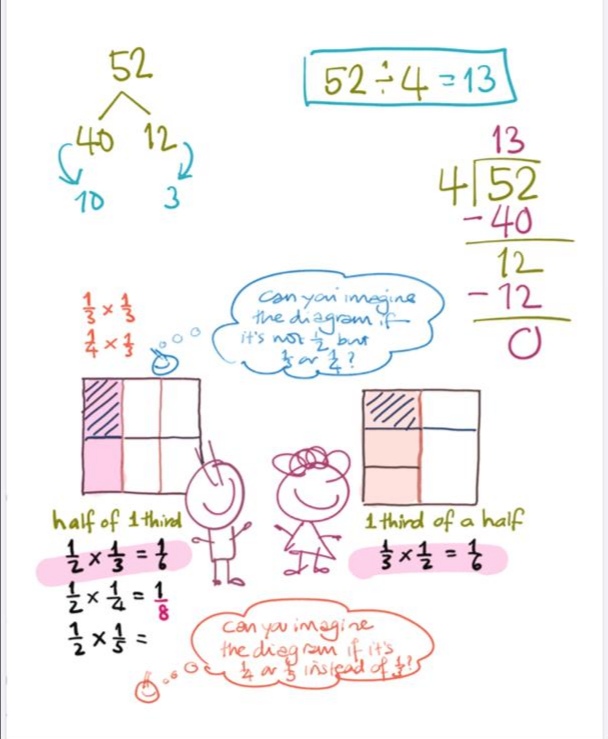 52
40 12
10 3
52 ÷ 4 = 13
13
4 52
- 40
12
- 12
0
1/3 × 1/3
1/4 × 1/3
Can you imagine
the diagram if
it's not 1/2, but
1/3 or 1/4?
half of 1 third
1/2 × 1/3 = 1/6
1/2 × 1/4 = 1/8
1/2 × 1/5 =
1 third of a half
1/3 × 1/2 = 1/6
Can you imagine
the diagram if it's
1/4 or 1/5 instead of 1/3?